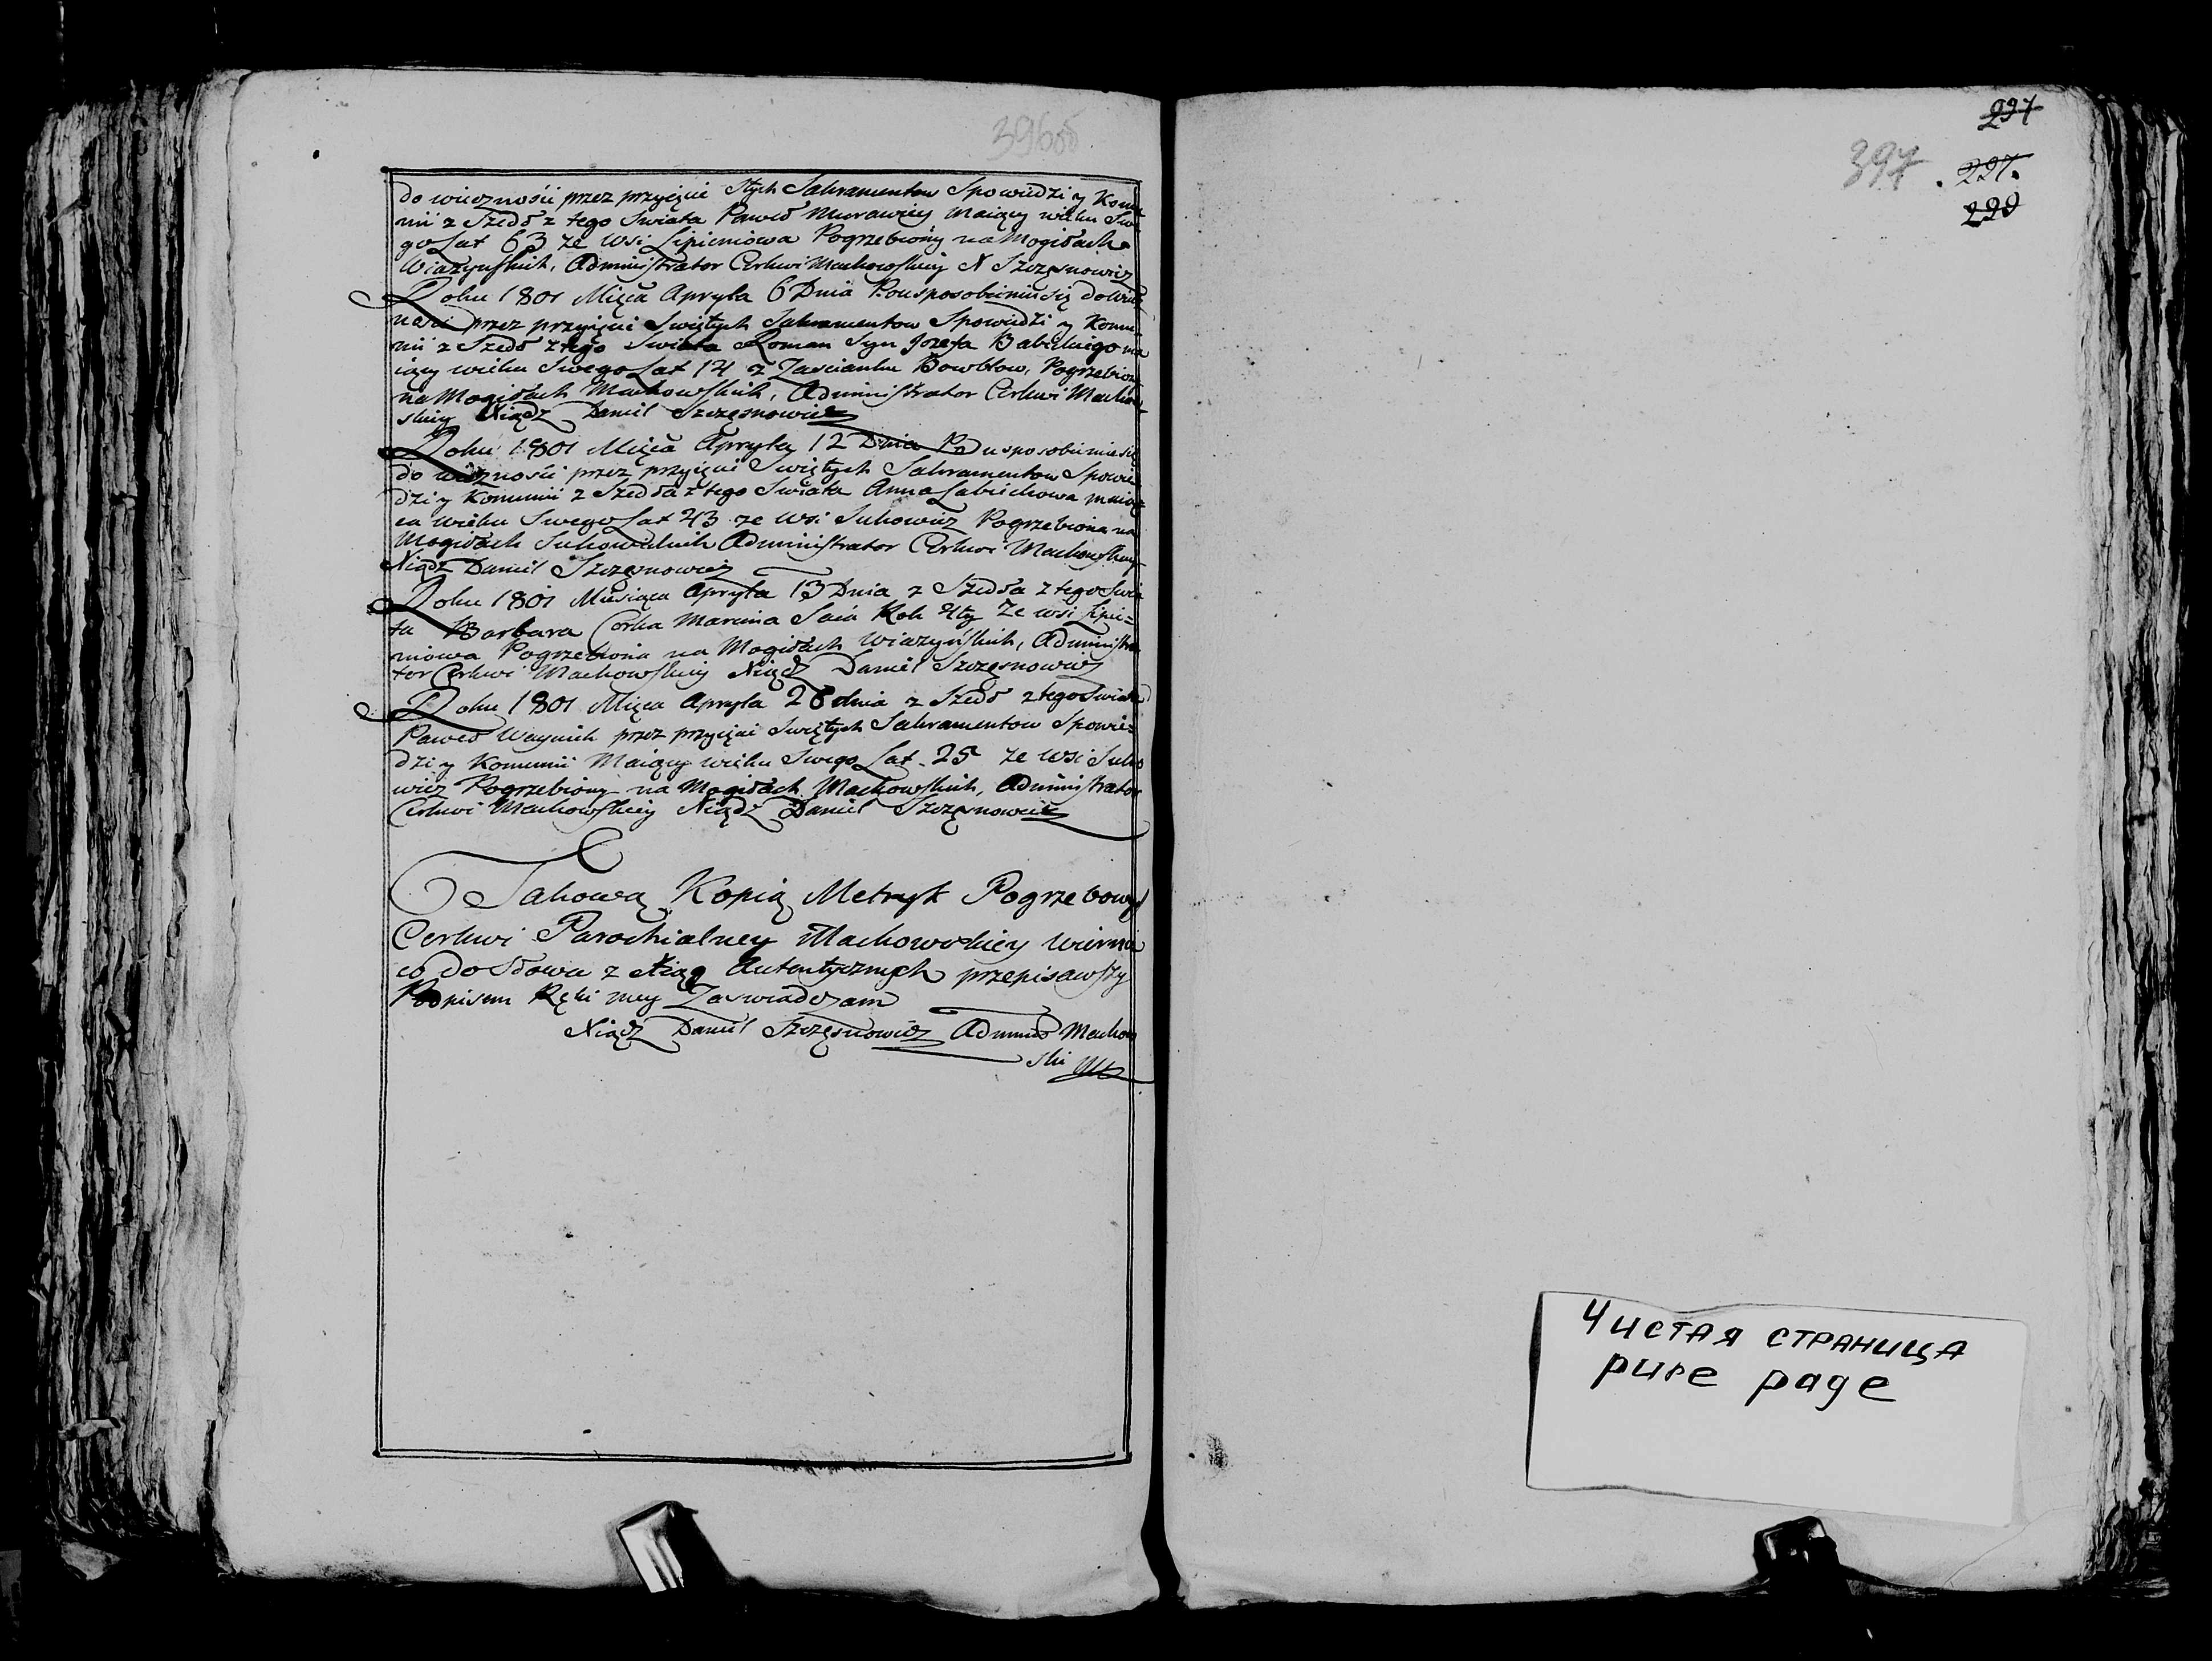 396об
do wiecznosci przez przyięcie Stych Sakramentow Spowiedzi y Komu
nii z Szedł z tego Swiata Paweł Murawiey Maiący wieku Swe
go Lat 63 ze Wsi Lipieniowa Pogrzebiony na Mogiłach
Wiazynskich, Administrator Cerkwi Machowskiey X Szczęsnowicz
Roku 1801 Mięca Apryla 6 Dnia Po usposobieniu się do wiecz
nosci przez przyięcie Swiętych Sakramentow Spowiedzi y Komu
nii z Szedł z tego Swiata Roman Syn Jozefa Babickiego ma
iący wieku Swego Lat 14 z Zascianku Bowblow, Pogrzebiony
na Mogiłach Machowskich, Administrator Cerkwi Machow
skiey Xiądz Daniel Szczęsnowicz
Roku 1801 Mięca Apryla 12 Dnia Po usposobieniu się
do wiecznosci przez przyięcie Swiętych Sakramentow Spowie
dzi y Komunii z Szedła z tego Swiata Anna Labuchowa maią
ca wieku Swego Lat 43 ze Wsi Sukowicz Pogrzebiona na
Mogiłach Administrator Cerkwi Machowskiey
Xiądz Daniel Szczęsnowicz
Roku 1801 Miesiąca Apryla 13 Dnia z Szedła z tego Swia
ta Barbara Corka Marcina Rok 4ty Ze wsi Lipie=
niowa Pogrzebiona na Mogiłach Wiazyńskich, Administra
tor Cerkwi Machowskiey Xiądz Daniel Szczęsnowicz
Roku 1801 Mięca Apryla 28 dnia z Szedł z tego Swiata
Paweł przez przyięcie Swiętych Sakramentow Spowie=
dzi y Komunii Maiący wieku Swego Lat 25 ze Wsi Suko
wicz Pogrzebiony na Mogiłach Machowskich, Administrator
Cerkwi Machowskiey Xiądz Daniel Szczęsnowicz
Takową Kopią Metryk Pogrzebowych
Cerkwi Parochialney Machowskiey wiernie
co do Słowa z Xiąg Autentycznych przepisawszy
Podpisem Ręki mey Zaswiadczam
Xiądz Daniel Szczęsnowicz Machow
ski
297
397 . 297.
299
Чистая страница
pure page